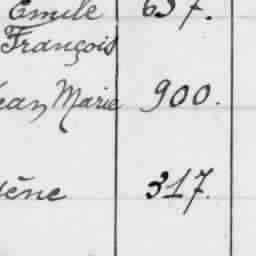 Emile 637.
François
Jean Marie 900.
317.